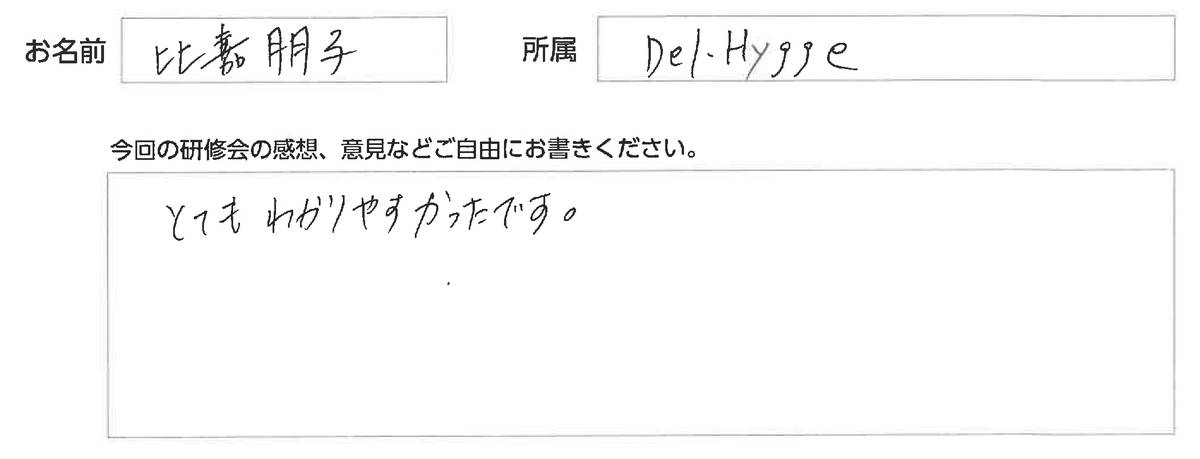 お名前 比嘉朋子 所属 Del.Hygge
今回の研修会の感想、意見などご自由にお書きください。
とてもわかりやすかったです。